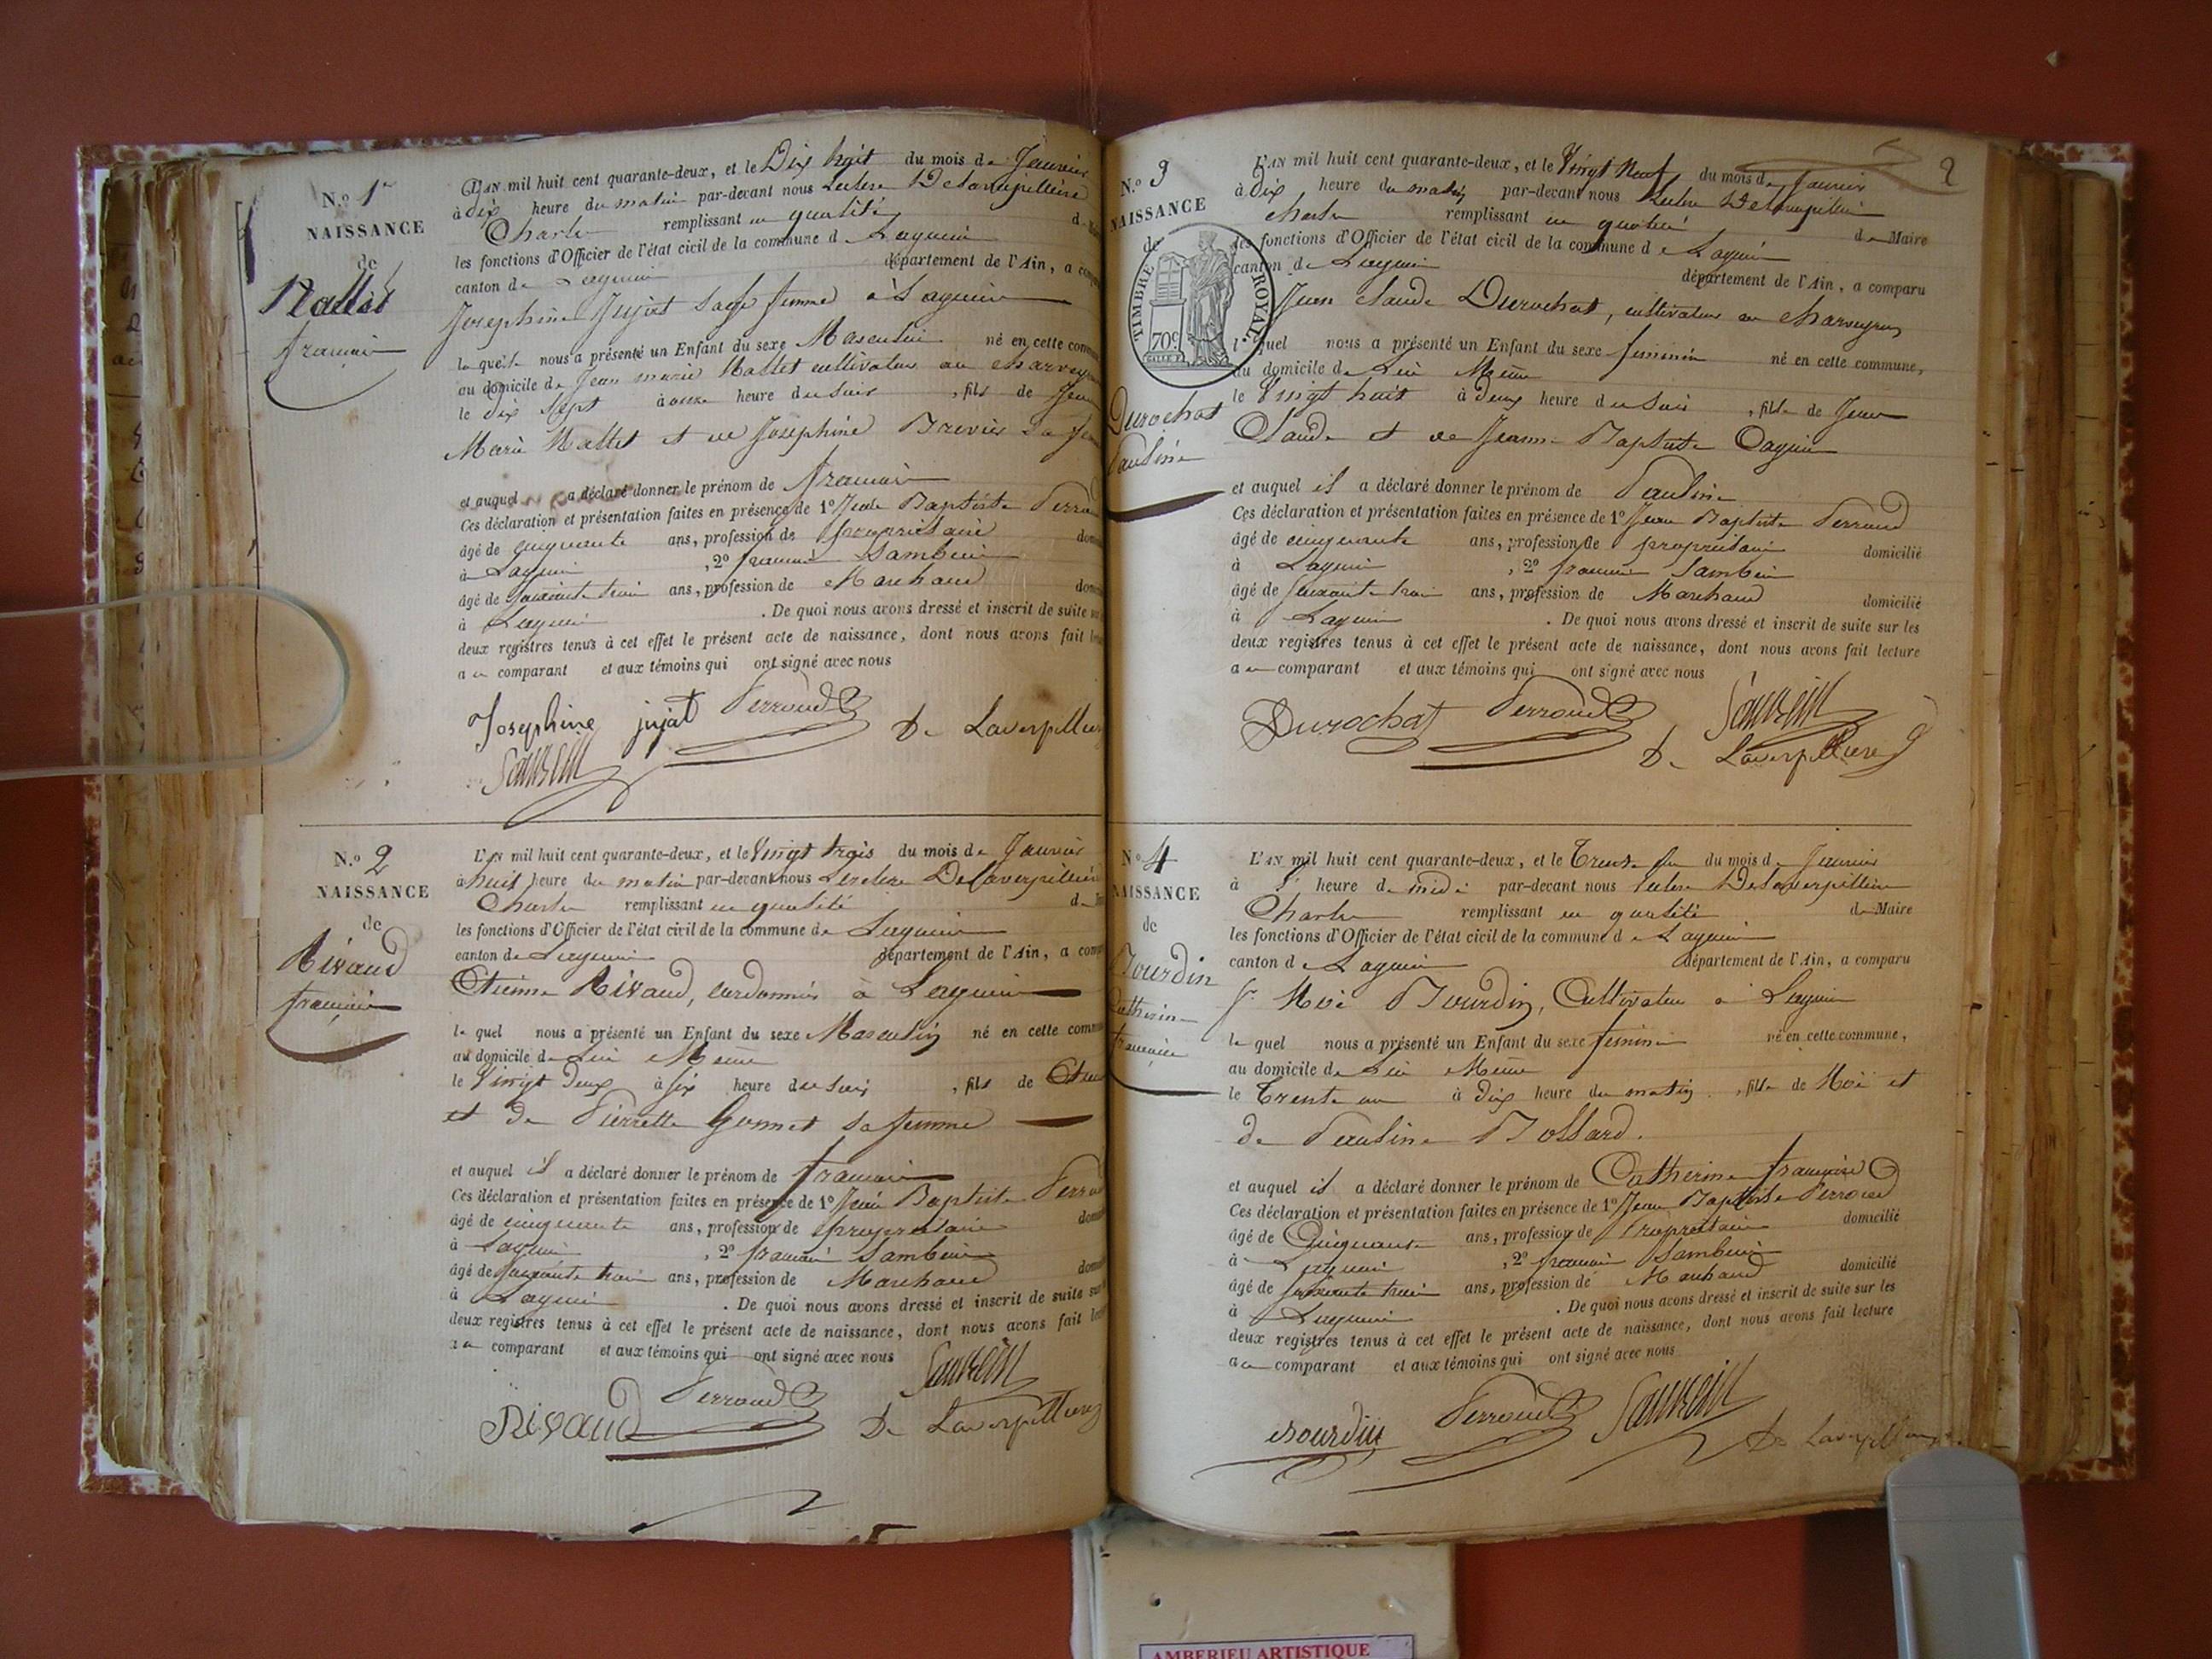 N.o 1er
NAISSANCE
de
Mallet
françois
L'AN mil huit cent quarante-deux, et le Dix huit du mois de Janvier
à dix heure du matin par-devant nous
Charles remplissant en qualité d
les fonctions d'Officier de l'état civil de la commune de Lagnieu
canton de Lagnieu département de l'Ain, a
Josephine Jujat Sage femme à Lagnieu
laquelle nous a présenté un Enfant du sexe Masculin né en cette
au domicile de Jean marie Mallet cultivateur au
le dix Sept à onze heure du soir, fils de Jean
Marie Mallet et de Joséphine Brevier Sa
et auquel a déclaré donner le prénom de françois
Ces déclaration et présentation faites en présence de 1o Jean Baptiste
âgé de cinquante ans, profession de propriétaire
à Lagnieu, 2o françois
âgé de soixante trois ans, profession de Marchand
à Lagnieu. De quoi nous avons dressé et inscrit de suite
deux registres tenus à cet effet le présent acte de naissance, dont nous avons fait
a comparant et aux témoins qui ont signé avec nous
Josephine jujat Perroud De Laverpilliere
N.o 2
NAISSANCE
de
Rivaud
françois
L'AN mil huit cent quarante-deux, et le Vingt trois du mois de Janvier
à huit heure du matin par-devant nous Delaverpilliere
Charles remplissant en qualité
les fonctions d'Officier de l'état civil de la commune de Lagnieu
canton de Lagnieu département de l'Ain, a
Etienne Rivaud, cordonnier à Lagnieu
lequel nous a présenté un Enfant du sexe Masculin né en cette
au domicile de Lui Même
le Vingt Deux à six heure du soir, fils de
et de Pierrette Gonnet sa femme
et auquel il a déclaré donner le prénom de françois
Ces déclaration et présentation faites en présence de 1o Jean Baptiste
âgé de cinquante ans, profession de propriétaire
à Lagnieu, 2o françois
âgé de soixante trois ans, profession de Marchand
à Lagnieu. De quoi nous avons dressé et inscrit de suite
deux registres tenus à cet effet le présent acte de naissance, dont nous avons fait
a comparant et aux témoins qui ont signé avec nous
Rivaud Perroud De Laverpilliere
2
N.o 3
NAISSANCE
de
TIMBRE ROYAL
70c
Durochat
Pauline
L'AN mil huit cent quarante-deux, et le Vingt Neuf du mois de Janvier
à Dix heure du matin par-devant nous
Charles remplissant en qualité de Maire
les fonctions d'Officier de l'état civil de la commune de Lagnieu
canton de Lagnieu département de l'Ain, a comparu
Jean Claude Durochat, cultivateur au
lequel nous a présenté un Enfant du sexe féminin né en cette commune,
au domicile de Lui Même
le Vingt huit à Deux heure du soir, fille de Jean
Claude et de Jeanne Baptiste
et auquel il a déclaré donner le prénom de Pauline
Ces déclaration et présentation faites en présence de 1o Jean Baptiste Perroud
âgé de cinquante ans, profession de propriétaire domicilié
à Lagnieu, 2o françois
âgé de soixante trois ans, profession de Marchand domicilié
à Lagnieu. De quoi nous avons dressé et inscrit de suite sur les
deux registres tenus à cet effet le présent acte de naissance, dont nous avons fait lecture
au comparant et aux témoins qui ont signé avec nous
Durochat Perroud
De Laverpilliere
N.o 4
NAISSANCE
de
Bourdin
Catherine
françoise
L'AN mil huit cent quarante-deux, et le Trente un du mois de Janvier
à heure de midi par-devant nous Delaverpilliere
Charles remplissant en qualité de Maire
les fonctions d'Officier de l'état civil de la commune de Lagnieu
canton de Lagnieu département de l'Ain, a comparu
Bourdin, Cultivateur à Lagnieu
lequel nous a présenté un Enfant du sexe féminin né en cette commune,
au domicile de Lui Même
le Trente un à Dix heure du matin, fille de et
de Pauline Bollard.
et auquel il a déclaré donner le prénom de Catherine françoise
Ces déclaration et présentation faites en présence de 1o Jean Baptiste Perroud
âgé de Cinquante ans, profession de Propriétaire domicilié
à Lagnieu, 2o françois
âgé de soixante trois ans, profession de Marchand domicilié
à Lagnieu. De quoi nous avons dressé et inscrit de suite sur les
deux registres tenus à cet effet le présent acte de naissance, dont nous avons fait lecture
au comparant et aux témoins qui ont signé avec nous
Bourdin Perroud De Laverpilliere
AMBERIEU ARTISTIQUE